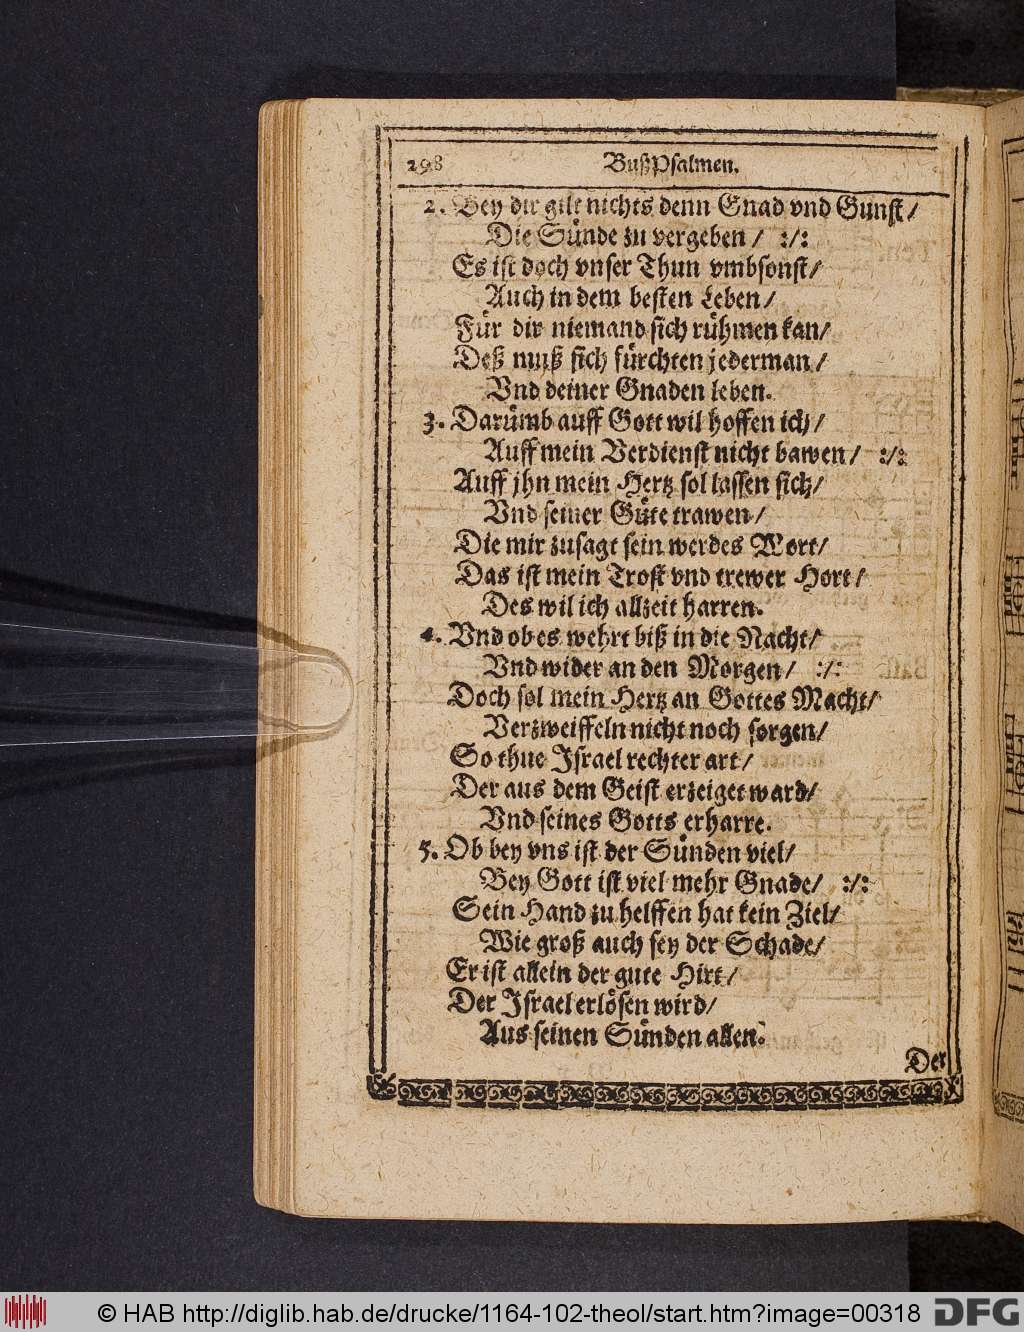 298 BußPsalmen.
2. Bey dir gilt nichts denn Gnad vnd Gunst /
Die Sünde zu vergeben / :/:
Es ist doch vnser Thun vmbsonst /
Auch in dem besten Leben /
Für dir niemand sich rühmen kan /
Deß muß sich fürchten jederman /
Vnd deiner Gnaden leben.
3. Darümb auff Gott wil hoffen ich /
Auff mein Verdienst nicht bawen / :/:
Auff jhn mein Hertz sol lassen sich /
Vnd seiner Güte trawen /
Die mir zusagt sein werdes Wort /
Das ist mein Trost vnd trewer Hort /
Des wil ich allzeit harren.
4. Vnd ob es wehrt biß in die Nacht /
Vnd wider an den Morgen / :/:
Doch sol mein Hertz an Gottes Macht /
Verzweiffeln nicht noch sorgen /
So thue Israel rechter art /
Der aus dem Geist erzeiget ward /
Vnd seines Gotts erharre.
5. Ob bey vns ist der Sünden viel /
Bey Gott ist viel mehr Gnade / :/:
Sein Hand zu helffen hat kein Ziel /
Wie groß auch sey der Schade /
Er ist allein der gute Hirt /
Der Israel erlösen wird /
Aus seinen Sünden allen.
Der
© HAB http://diglib.hab.de/drucke/1164-102-theol/start.htm?image=00318 DFG